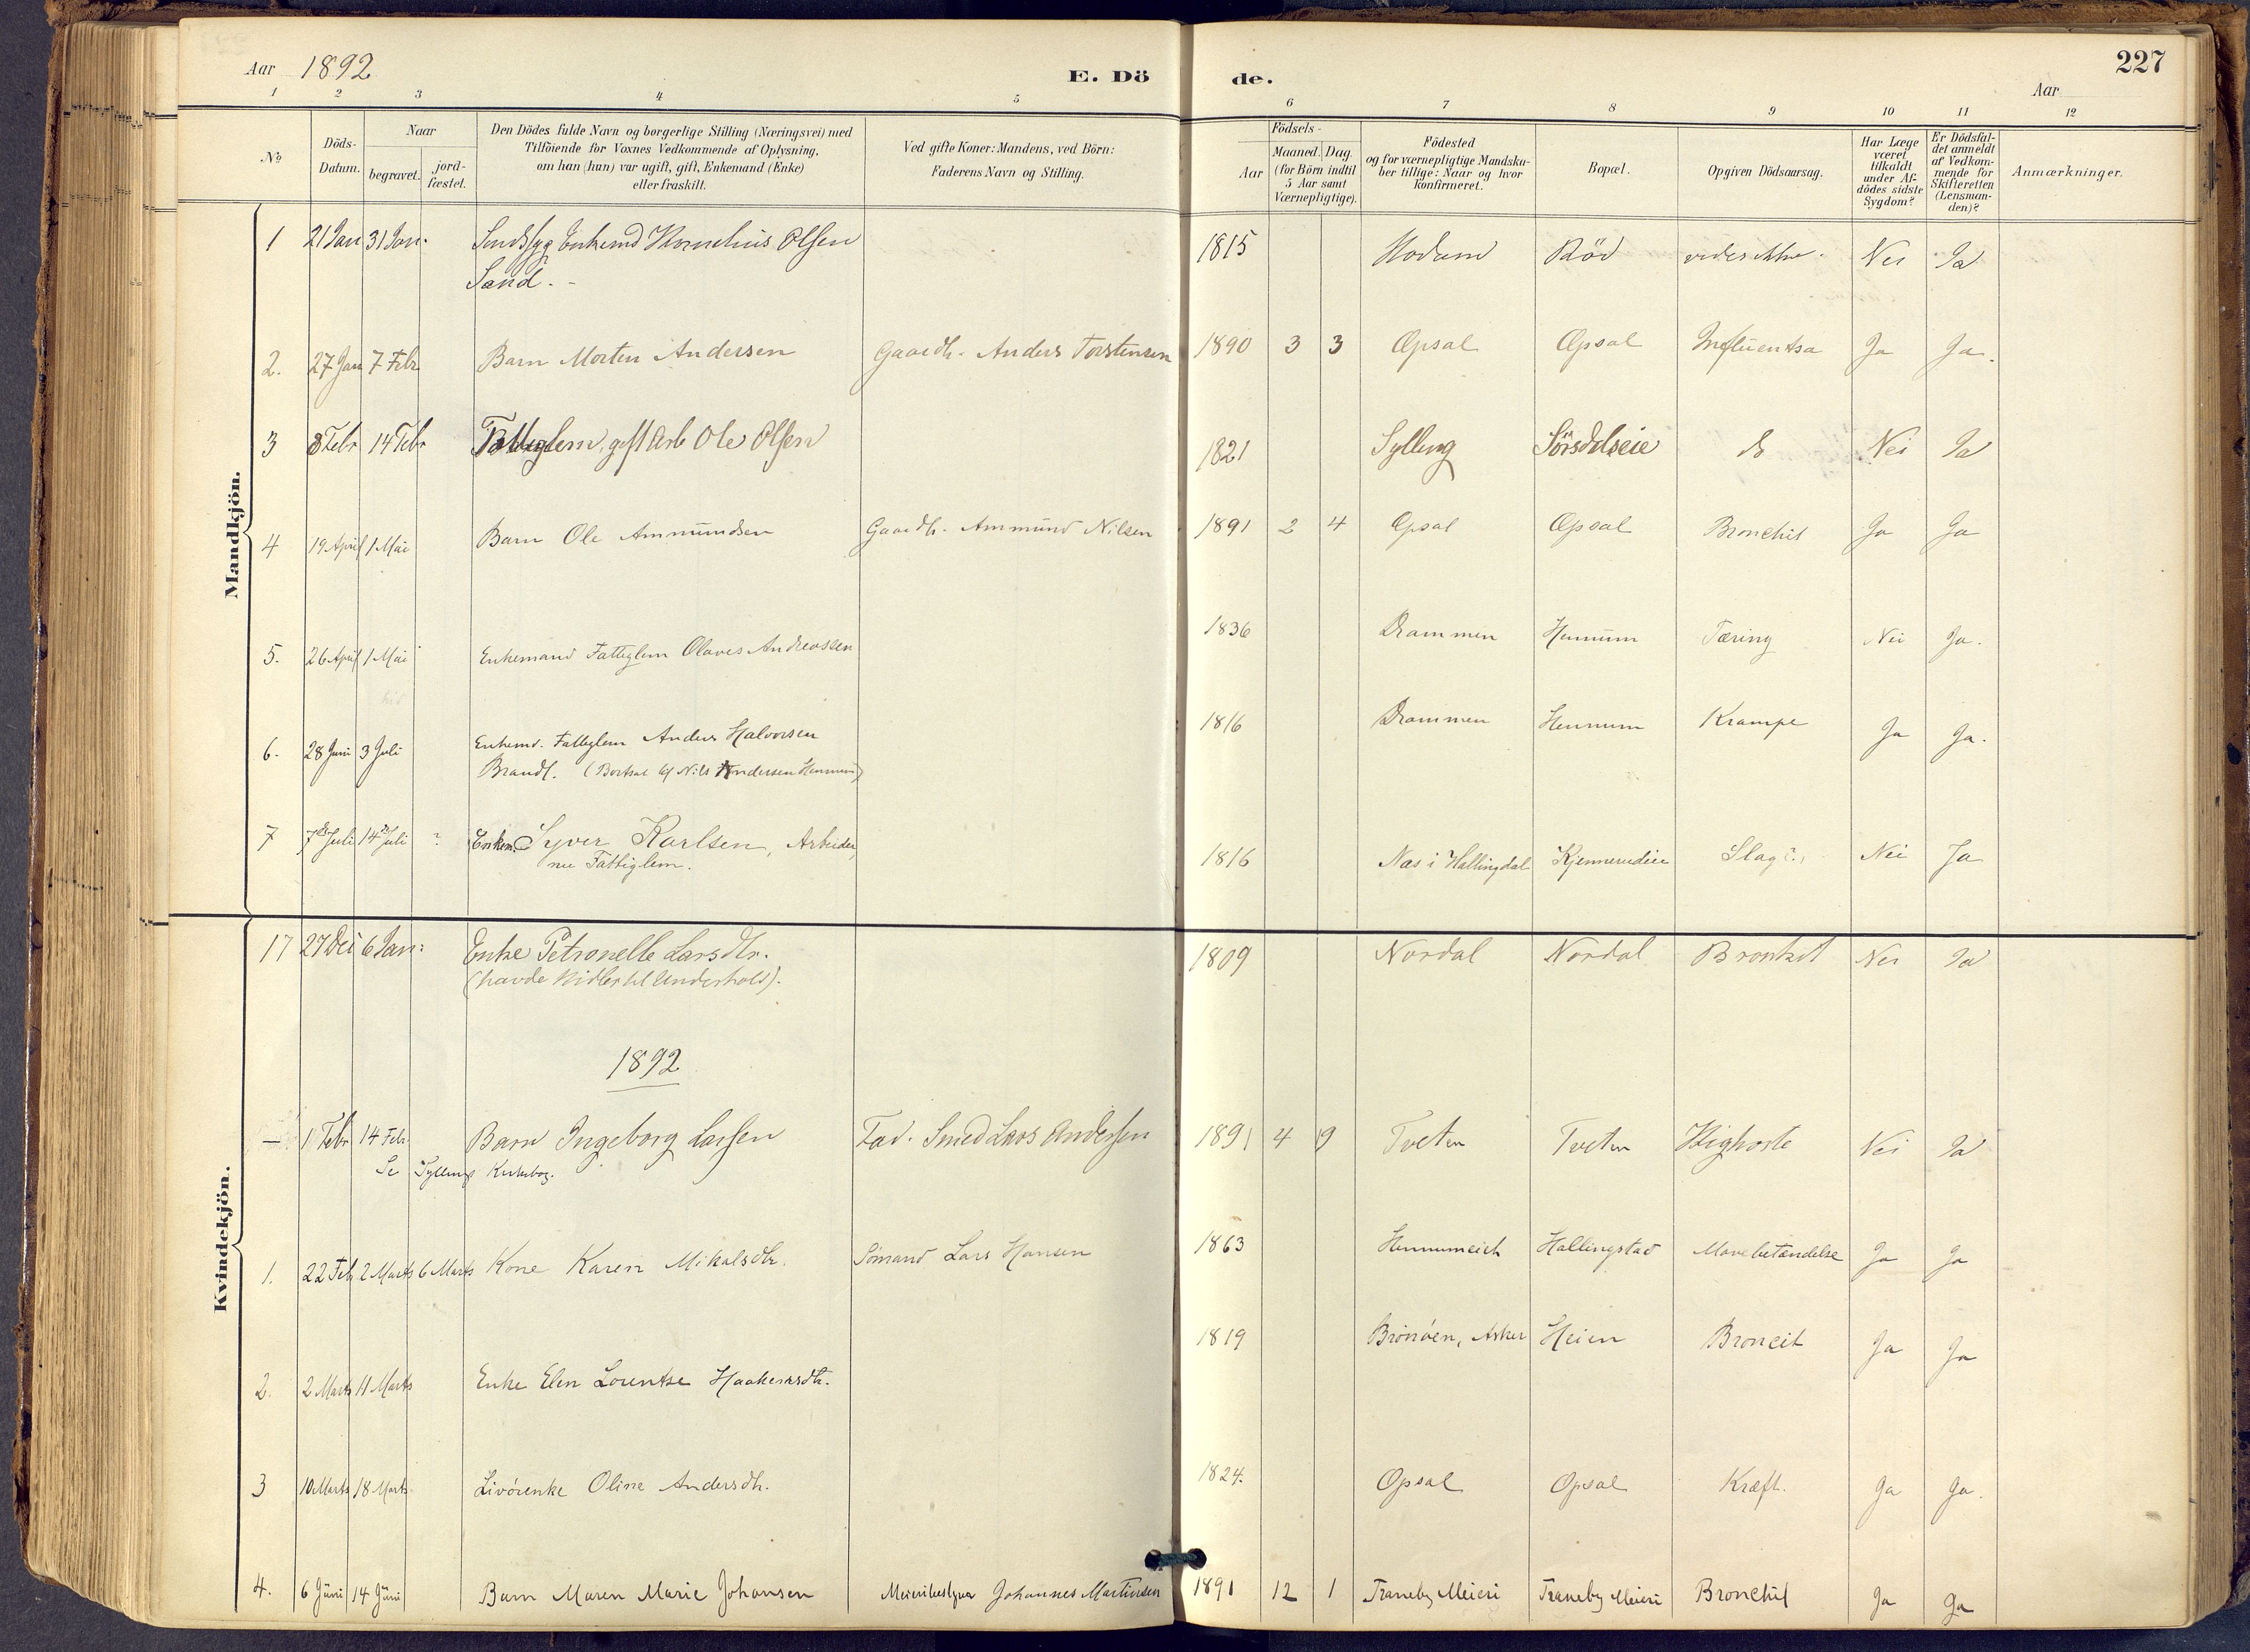 Aar 1892
E. Dö
de.
227
Aar
1 2 3 4 5 6 7 8 9 10 11 12
No
Döds-
Datum.
Naar
begravet.
jord-
fæstet.
Den Dödes fulde Navn og borgerlige Stilling (Næringsvei) med
Tilföiende for Voxnes Vedkommende af Oplysning,
om han (hun) var ugift, gift, Enkemand (Enke)
eller fraskilt.
Ved gifte Koner: Mandens, ved Börn:
Faderens Navn og Stilling.
Födsels-
Aar
Maaned. Dag.
(for Börn indtil
5 Aar samt
Værnepligtige).
Födested
og for værnepligtige Mandska-
ber tillige: Naar og hvor
konfirmeret.
Bopæl.
Opgiven Dödsaarsag.
Har Læge
været
tilkaldt
under Af-
dödes sidste
Sygdom?
Er Dödsfal-
det anmeldt
af Vedkom-
mende for
Skifteretten
(Lensman-
den)?
Anmærkninger.
Mandkjön.
1 21 Jan 31 Jan. Enkemd Kornelius Olsen 1815 Modum Röd Nei Ja
Sand.
2. 27 Jan 7 Febr Barn Morten Andersen Gaardb. Anders Torstensen 1890 3 3 Opsal Opsal Influentsa Ja Ja.
3 8 Febr 14 Febr Fattiglem, gift Arb Ole Olsen 1821 Sylling Sörsdalseie do Nei Ja
4 19 April 1 Mai Barn Ole Ammundsen Gaardb. Ammund Nilsen 1891 2 4 Opsal Opsal Bronchit Ja Ja
5. 26 April 1 Mai Enkemand Fattiglem Olaves Andreassen 1836 Drammen Hennum Tæring Nei Ja.
6. 28 Juni 3 Juli Enkemd. Fattiglem Anders Halvorsen 1816 Drammen Hennum Krampe Ja Ja.
Brandt. (Bortsat til Nils Andersen Hennum)
7 7de Juli 14de Juli ? Enkem. Syver Karlsen, Arbeider, 1816 Næs i Hallingdal Kjennerudeie Slag?, Nei Ja
nu Fattiglem.
Kvindekjön.
17 27 Dei 6 Jan: Enke Petronelle Larsdtr. 1809 Nordal Nordal Bronkit Nei Ja
(havde Midler til Underhold).
1892
— 1 Febr 14 Febr Barn Ingeborg Larsen Fad. Smed Lars Andersen 1891 4 9 Tveten Tveten Kighoste Nei Ja
Se Syllings Kirkebog.
1. 22 Feb 2 Marts 6 Marts Kone Karen Mikalsdtr. Sömand Lars Hansen 1863 Hennumeich Hallingstad Mavebetændelse Ja Ja
2. 2 Marts 11 Marts Enke Elen Lorentse Haakensdtr. 1819 Brönöen, Asker Heien Broncit Ja Ja
3 10 Marts 18 Marts Livörenke Oline Andersdtr. 1824. Opsal Opsal Kræft. Ja Ja.
4. 6 Juni 14 Juni Barn Maren Marie Johansen Meieribestyrer Johannes Martinsen 1891 12 1 Traneby Meieri Traneby Meieri Bronchit Ja Ja